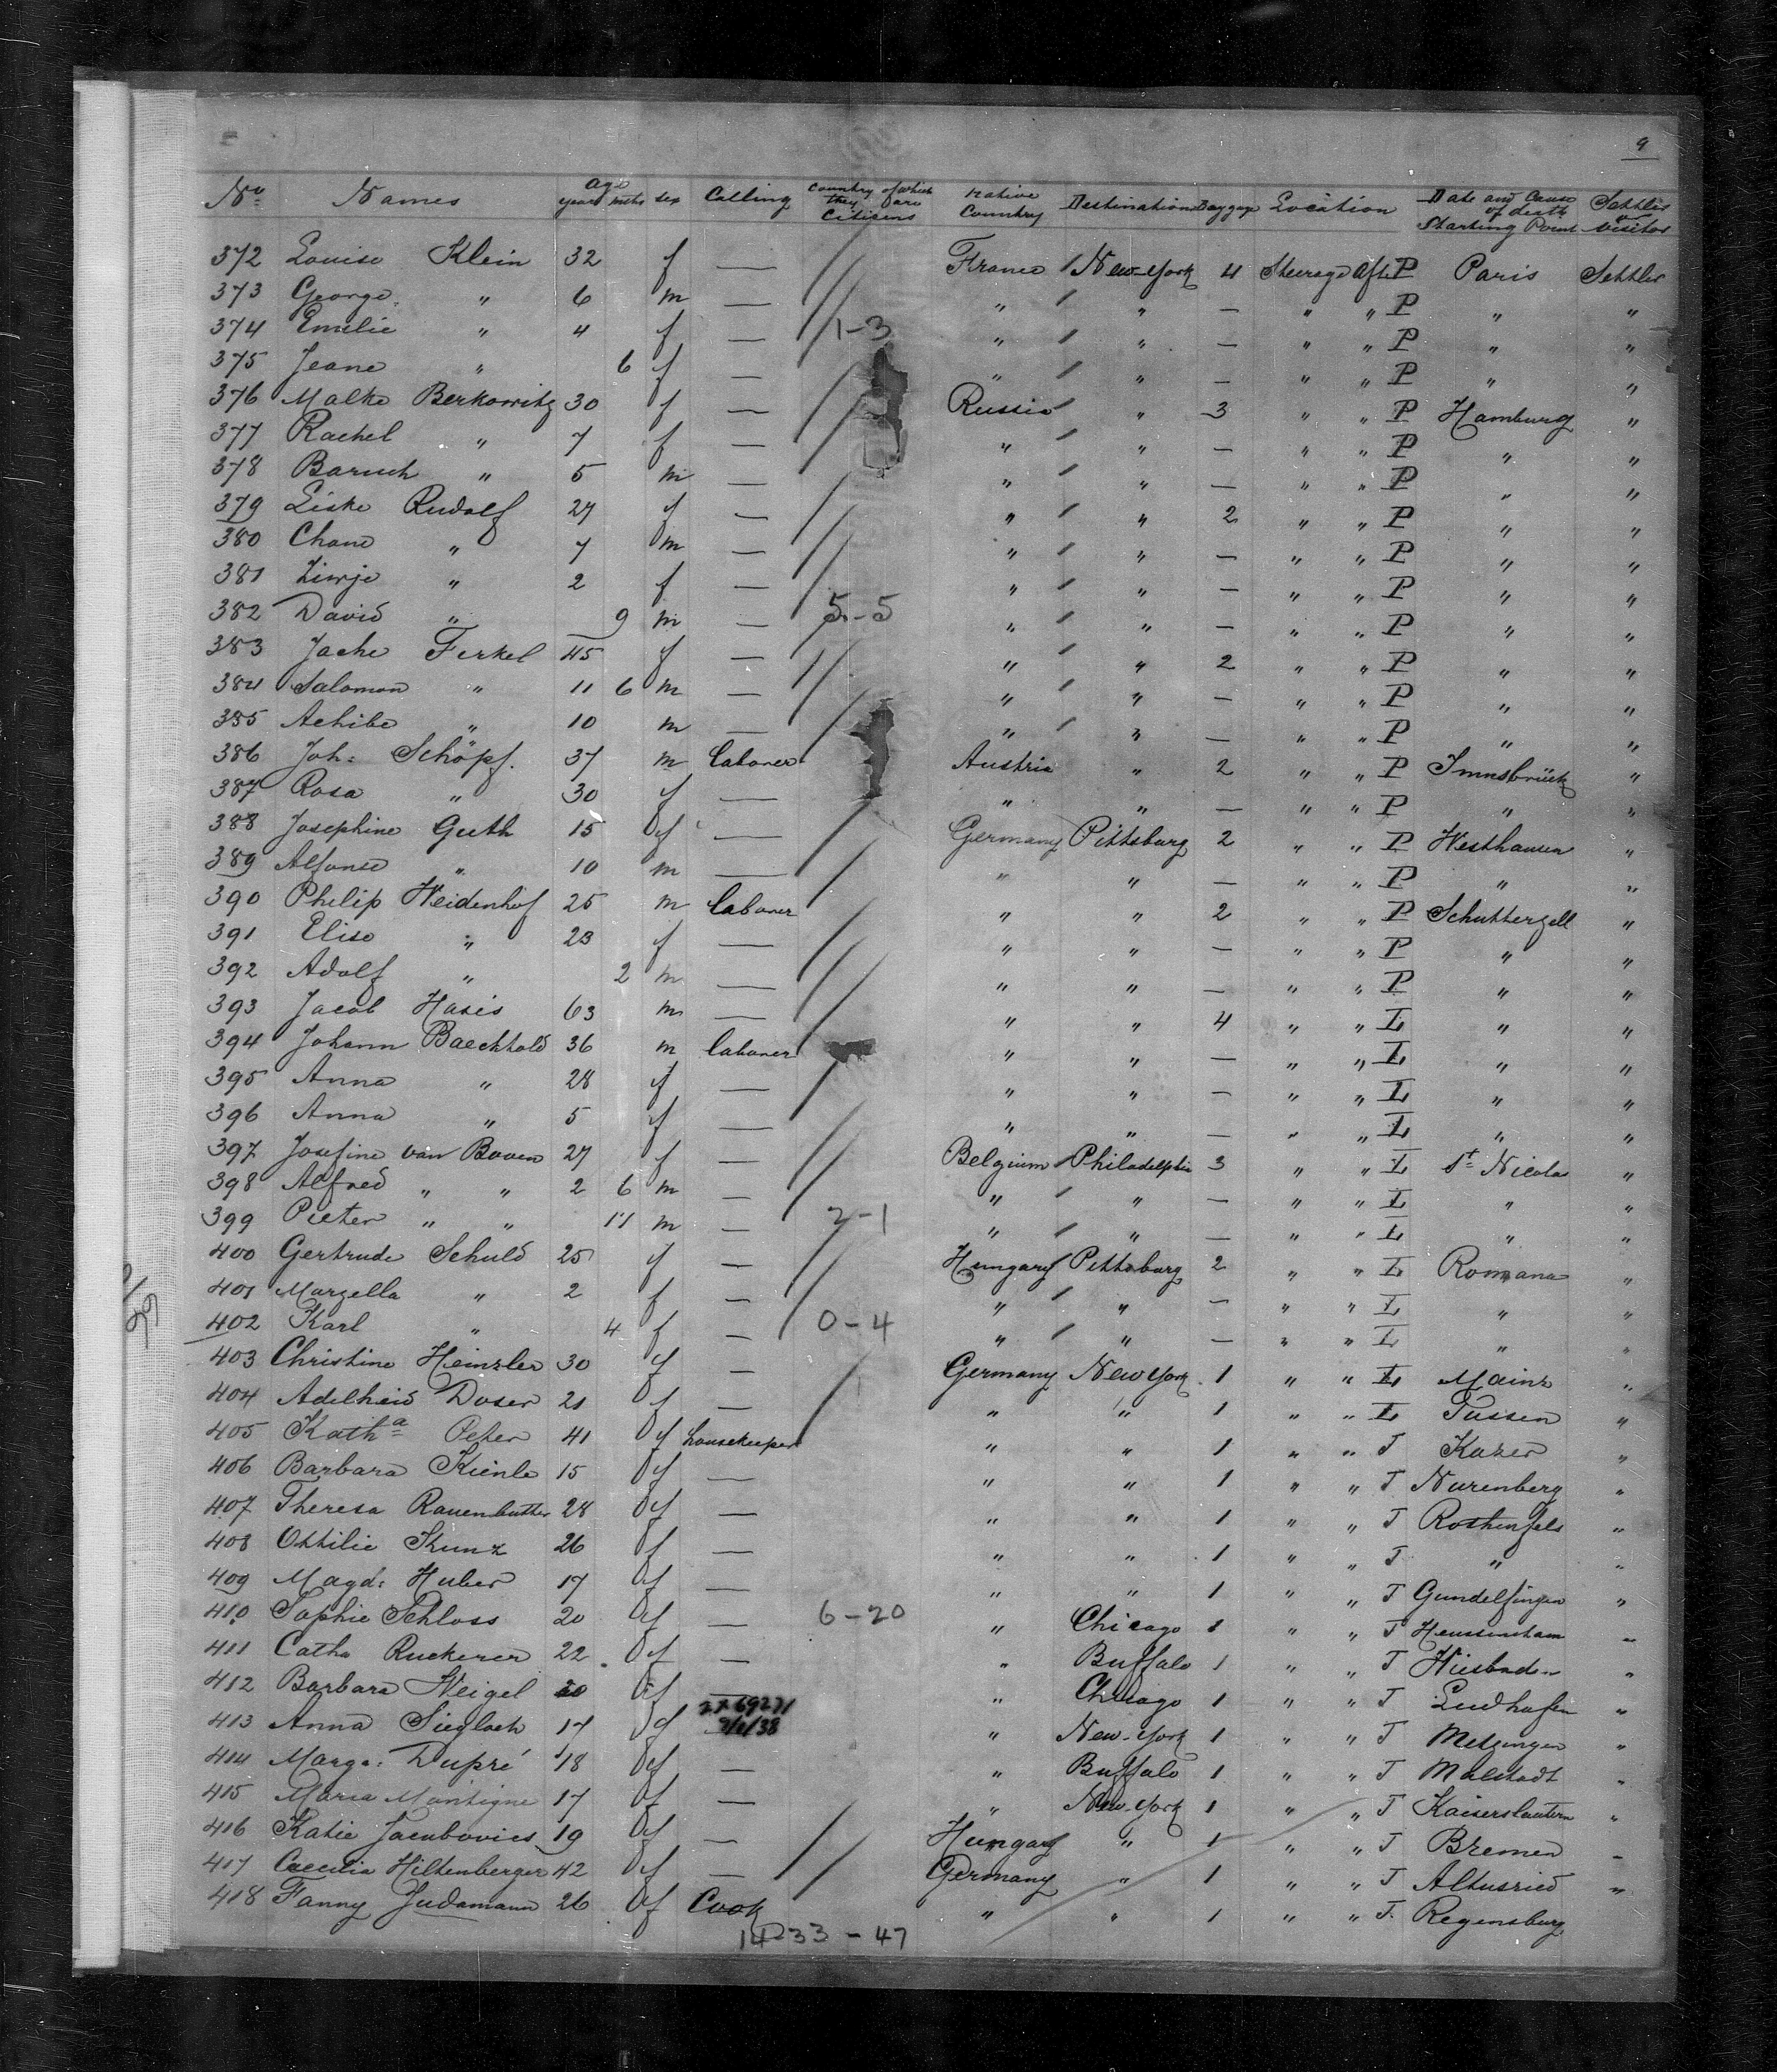 9
No Names age years mths sex Calling Country of which they are Citizens native Country Destination Baggage Location Date and Cause of death Starting Point Settler or Visitor
372 Louise Klein 32 f — France New-York 4 Steerage Aft P Paris Settler
373 George " 6 m — " " — " " P " "
374 Emilie " 4 f — 1-3 " " — " " P " "
375 Jeane " 6 f — " " — " " P " "
376 Malke Berkowitz 30 f — Russia " 3 " " P Hamburg "
377 Rachel " 7 f — " " — " " P " "
378 Baruch " 5 m — " " — " " P " "
379 Liske Rudolf 27 f — " " 2 " " P " "
380 Chane " 7 m — " " — " " P " "
381 Ziwje " 2 f — " " — " " P " "
382 David " 9 m — 5-5 " " — " " P " "
383 Jache Ferkel 45 f — " " 2 " " P " "
384 Salomon " 11 6 m — " " — " " P " "
385 Achibe " 10 m — " " — " " P " "
386 Joh: Schöpf. 37 m laborer Austria " 2 " " P Innsbrück "
387 Rosa " 30 f — " " — " " P " "
388 Josephine Guth 15 f — Germany Pittsburg 2 " " P Westhausen "
389 Alfonse " 10 m — " " — " " P " "
390 Philip Weidenhof 25 m laborer " " 2 " " P Schutterzell "
391 Elise " 23 f — " " — " " P " "
392 Adolf " 2 m — " " — " " P " "
393 Jacob Hasis 63 m — " " 4 " " L " "
394 Johann Baechhold 36 m laborer " " — " " L " "
395 Anna " 28 f — " " — " " L " "
396 Anna " 5 f — " " — " " L " "
397 Josefine van Boven 27 f — Belgium Philadelphia 3 " " L St Nicolas "
398 Alfred " " 2 6 m — " " — " " L " "
399 Pieter " " 11 m — 2-1 " " — " " L " "
400 Gertrude Schuld 25 f — Hungary Pittsburg 2 " " L Romana "
401 Marzella " 2 f — " " — " " L " "
402 Karl " 4 f — 0-4 " " — " " L " "
403 Christine Heinzler 30 f — Germany New York 1 " " L Mainz "
404 Adelheid Doser 21 f — " " 1 " " L Füssen "
405 Katha Peter 41 f housekeeper " " 1 " " T "
406 Barbara Kienle 15 f — " " 1 " " T Nurenberg "
407 Theresa 28 f — " " 1 " " T Rothenfels "
408 Ottilie Kunz 26 f — " " 1 " " T " "
409 Magd: Huber 17 f — " " 1 " " T Gundelfingen "
410 Sophie Schloss 20 f — 6-20 " Chicago 1 " " T "
411 Catha Ruckerer 22 f — " Buffalo 1 " " T Wiesbaden "
412 Barbara Weigel 20 f — " Chicago 1 " " T "
413 Anna Siegloch 17 f " New-York 1 " " T Metzingen "
414 Marga: Dupré 18 f — " Buffalo 1 " " T Malstadt "
415 Maria Montigne 17 f — " New-York 1 " " T Kaiserslautern "
416 Katie Jacubovics 19 f — Hungary " 1 " " T Bremen "
417 Caecilia Hiltenberger 42 f — Germany " 1 " " T Altusried "
418 Fanny Judamann 26 f Cook " " 1 " " T. Regensburg
33 - 47